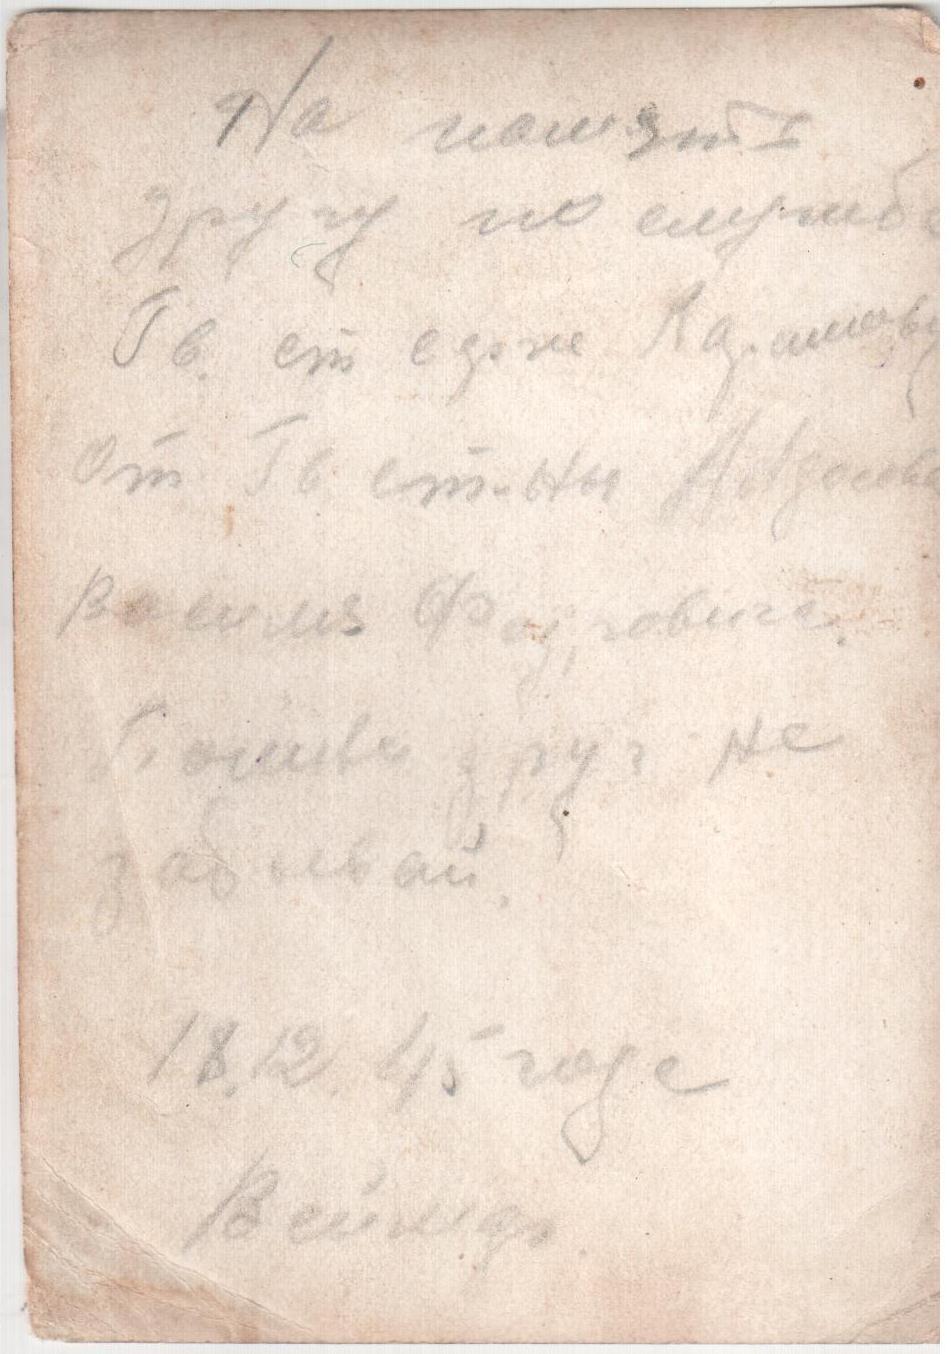 На память
другу по службе
Гв. ст. серж
от Гв ст-ны
Василия
Помни друг не
забывай.
18.12.45 года
Веймар.